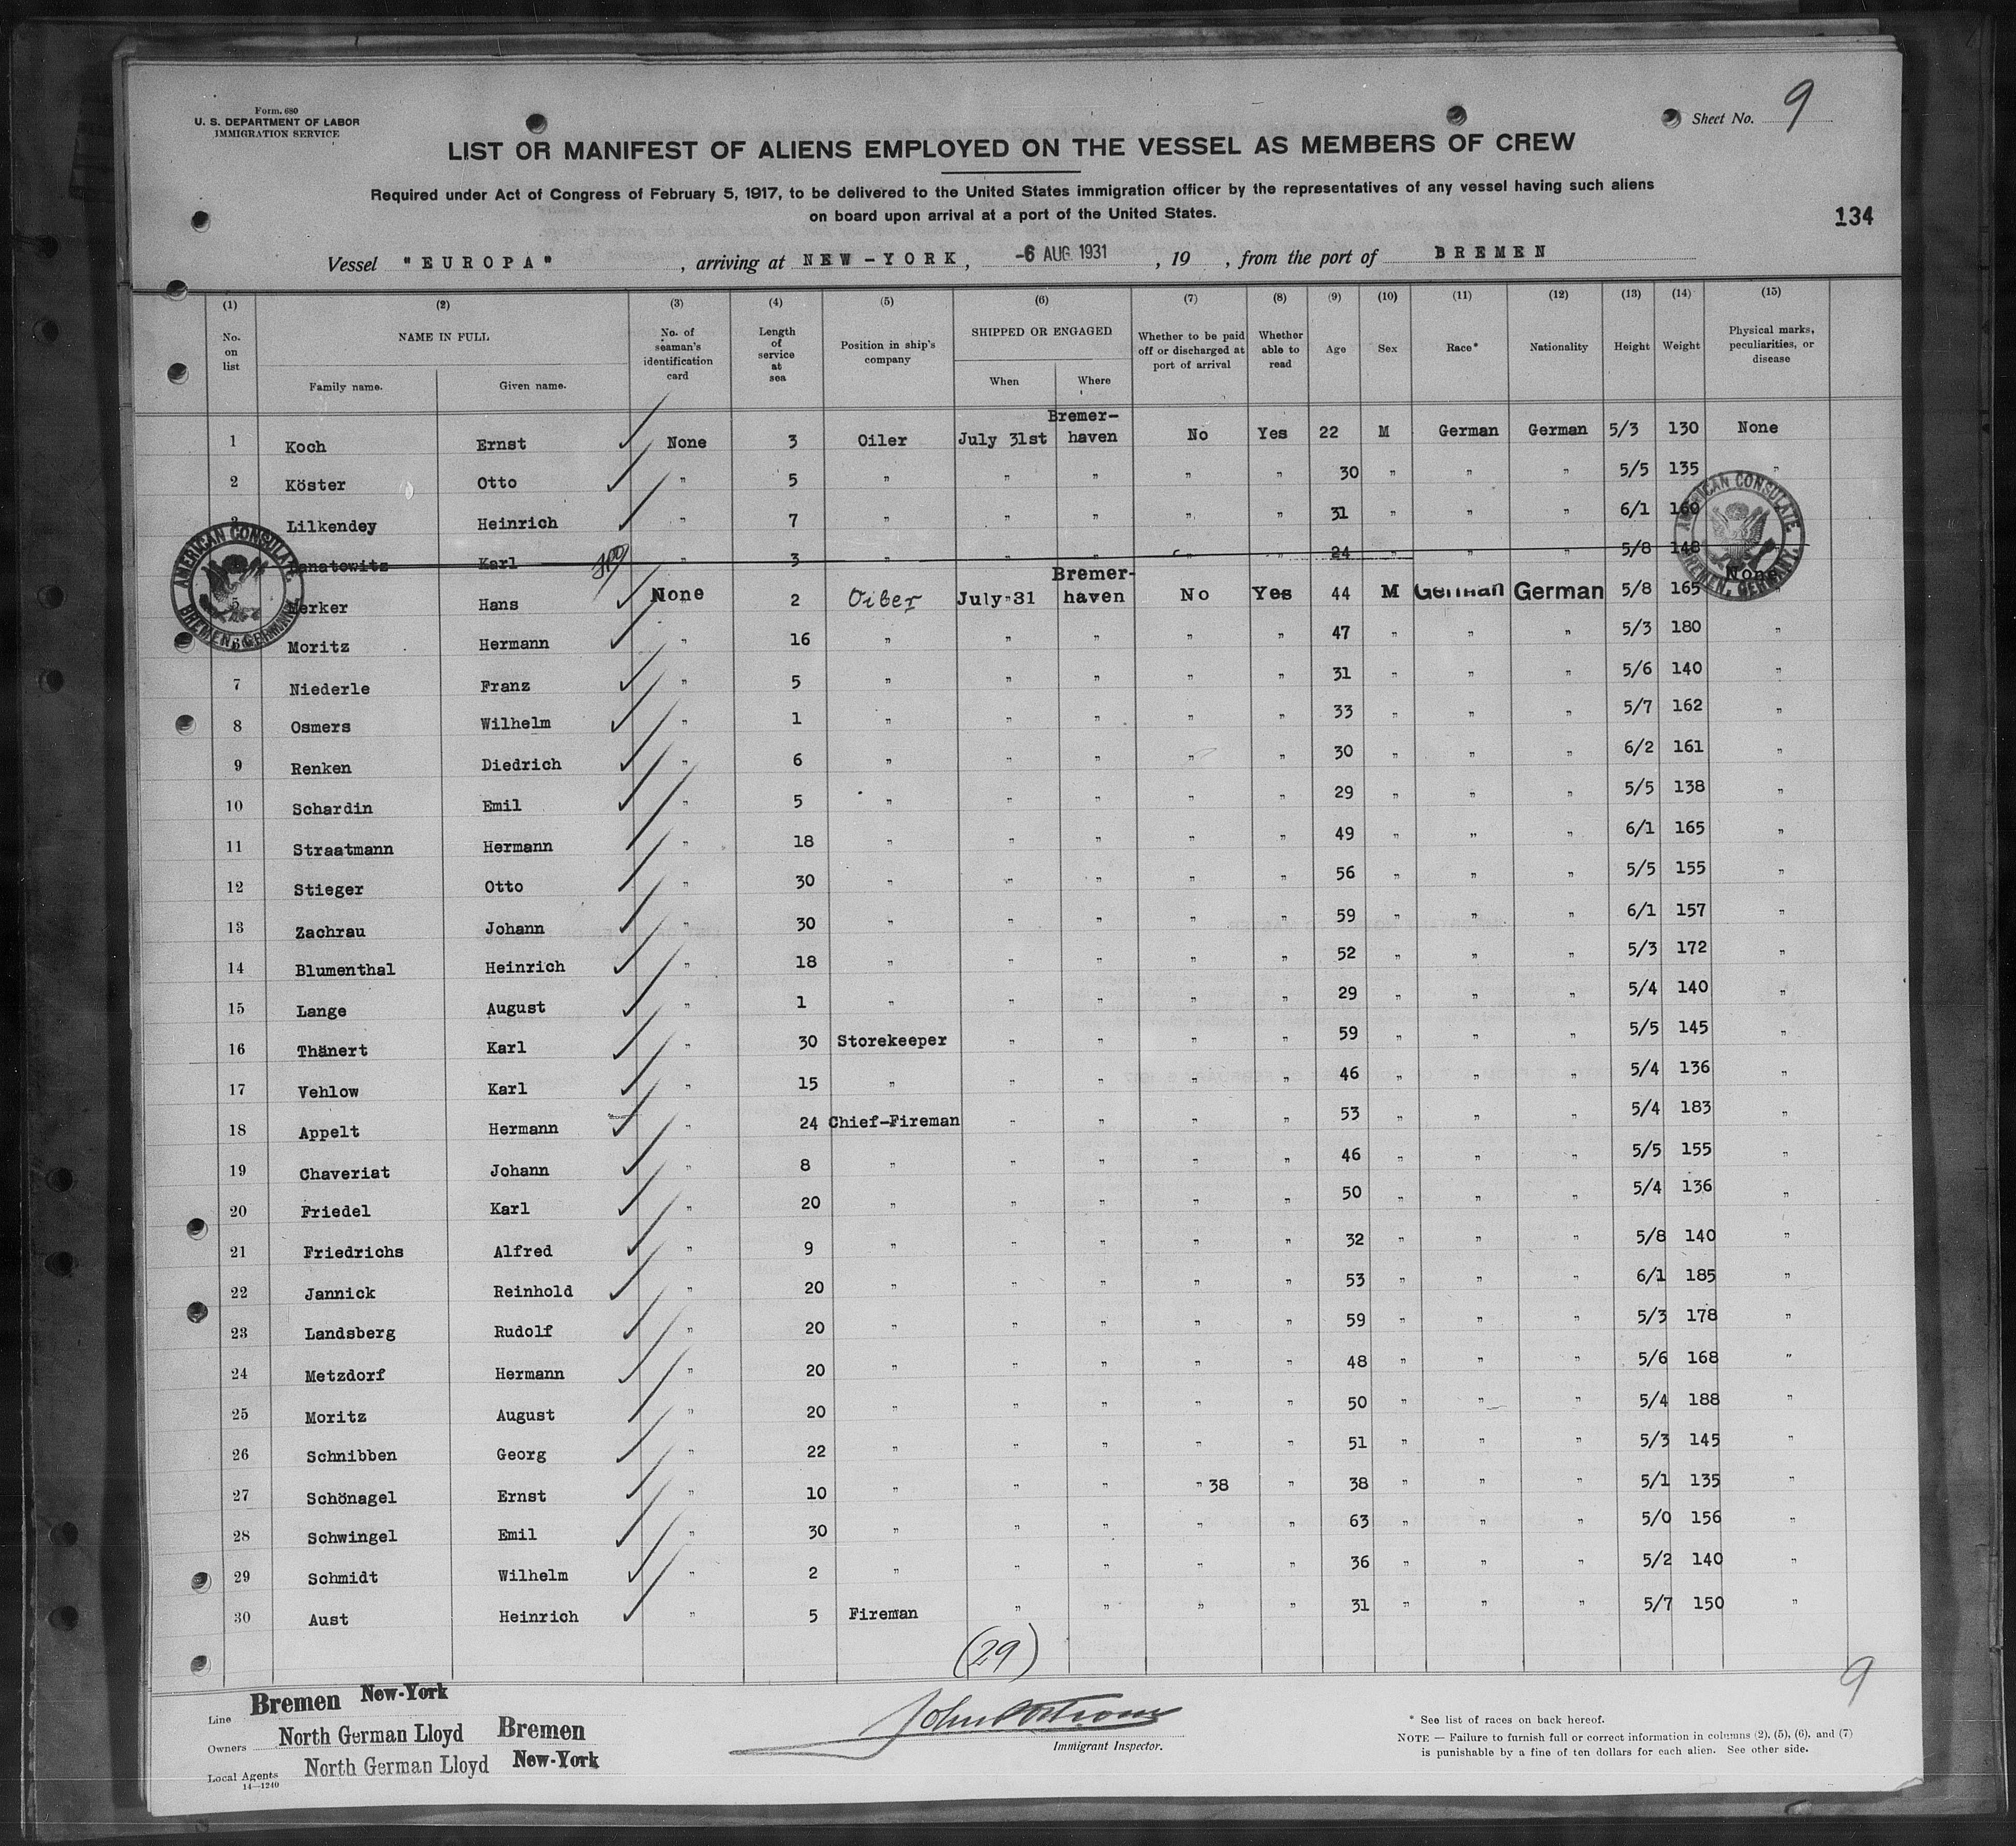 Form. 680
U. S. DEPARTMENT OF LABOR
IMMIGRATION SERVICE
Sheet No. 9
LIST OR MANIFEST OF ALIENS EMPLOYED ON THE VESSEL AS MEMBERS OF CREW
Required under Act of Congress of February 5, 1917, to be delivered to the United States immigration officer by the representatives of any vessel having such aliens
on board upon arrival at a port of the United States.
134
Vessel "EUROPA", arriving at NEW-YORK, -6 AUG 1931, 19 , from the port of BREMEN
(1) (2) (3) (4) (5) (6) (7) (8) (9) (10) (11) (12) (13) (14) (15)
No. on list NAME IN FULL Family name. Given name. No. of seaman's identification card Length of service at sea Position in ship's company SHIPPED OR ENGAGED When Where Whether to be paid off or discharged at port of arrival Whether able to read Age Sex Race* Nationality Height Weight Physical marks, peculiarities, or disease
1 Koch Ernst None 3 Oiler July 31st Bremer-haven No Yes 22 M German German 5/3 130 None
2 Köster Otto " 5 " " " " " 30 " " " 5/5 135 "
3 Lilkendey Heinrich " 7 " " " " " 31 " " " 6/1 160
Karl " 3 " " " " " 24 " " " 5/8 148
5 Merker Hans None 2 Oiler July 31 Bremer-haven No Yes 44 M German German 5/8 165 None
6 Moritz Hermann " 16 " " " " " 47 " " " 5/3 180 "
7 Niederle Franz " 5 " " " " " 31 " " " 5/6 140 "
8 Osmers Wilhelm " 1 " " " " " 33 " " " 5/7 162 "
9 Renken Diedrich " 6 " " " " " 30 " " " 6/2 161 "
10 Schardin Emil " 5 " " " " " 29 " " " 5/5 138 "
11 Straatmann Hermann " 18 " " " " " 49 " " " 6/1 165 "
12 Stieger Otto " 30 " " " " " 56 " " " 5/5 155 "
13 Zachrau Johann " 30 " " " " " 59 " " " 6/1 157 "
14 Blumenthal Heinrich " 18 " " " " " 52 " " " 5/3 172 "
15 Lange August " 1 " " " " " 29 " " " 5/4 140 "
16 Thänert Karl " 30 Storekeeper " " " " 59 " " " 5/5 145 "
17 Vehlow Karl " 15 " " " " " 46 " " " 5/4 136 "
18 Appelt Hermann " 24 Chief-Fireman " " " " 53 " " " 5/4 183 "
19 Chaveriat Johann " 8 " " " " " 46 " " " 5/5 155 "
20 Friedel Karl " 20 " " " " " 50 " " " 5/4 136 "
21 Friedrichs Alfred " 9 " " " " " 32 " " " 5/8 140 "
22 Jannick Reinhold " 20 " " " " " 53 " " " 6/1 185 "
23 Landsberg Rudolf " 20 " " " " " 59 " " " 5/3 178 "
24 Metzdorf Hermann " 20 " " " " " 48 " " " 5/6 168 "
25 Moritz August " 20 " " " " " 50 " " " 5/4 188 "
26 Schnibben Georg " 22 " " " " " 51 " " " 5/3 145 "
27 Schönagel Ernst " 10 " " " " 38 " 38 " " " 5/1 135 "
28 Schwingel Emil " 30 " " " " " 63 " " " 5/0 156 "
29 Schmidt Wilhelm " 2 " " " " " 36 " " " 5/2 140 "
30 Aust Heinrich " 5 Fireman " " " " 31 " " " 5/7 150 "
AMERICAN CONSULATE BREMEN, GERMANY.
AMERICAN CONSULATE BREMEN, GERMANY.
(29)
9
Line Bremen New-York
Owners North German Lloyd Bremen
Local Agents North German Lloyd New-York
14—1240
Immigrant Inspector.
* See list of races on back hereof.
NOTE — Failure to furnish full or correct information in columns (2), (5), (6), and (7)
is punishable by a fine of ten dollars for each alien. See other side.